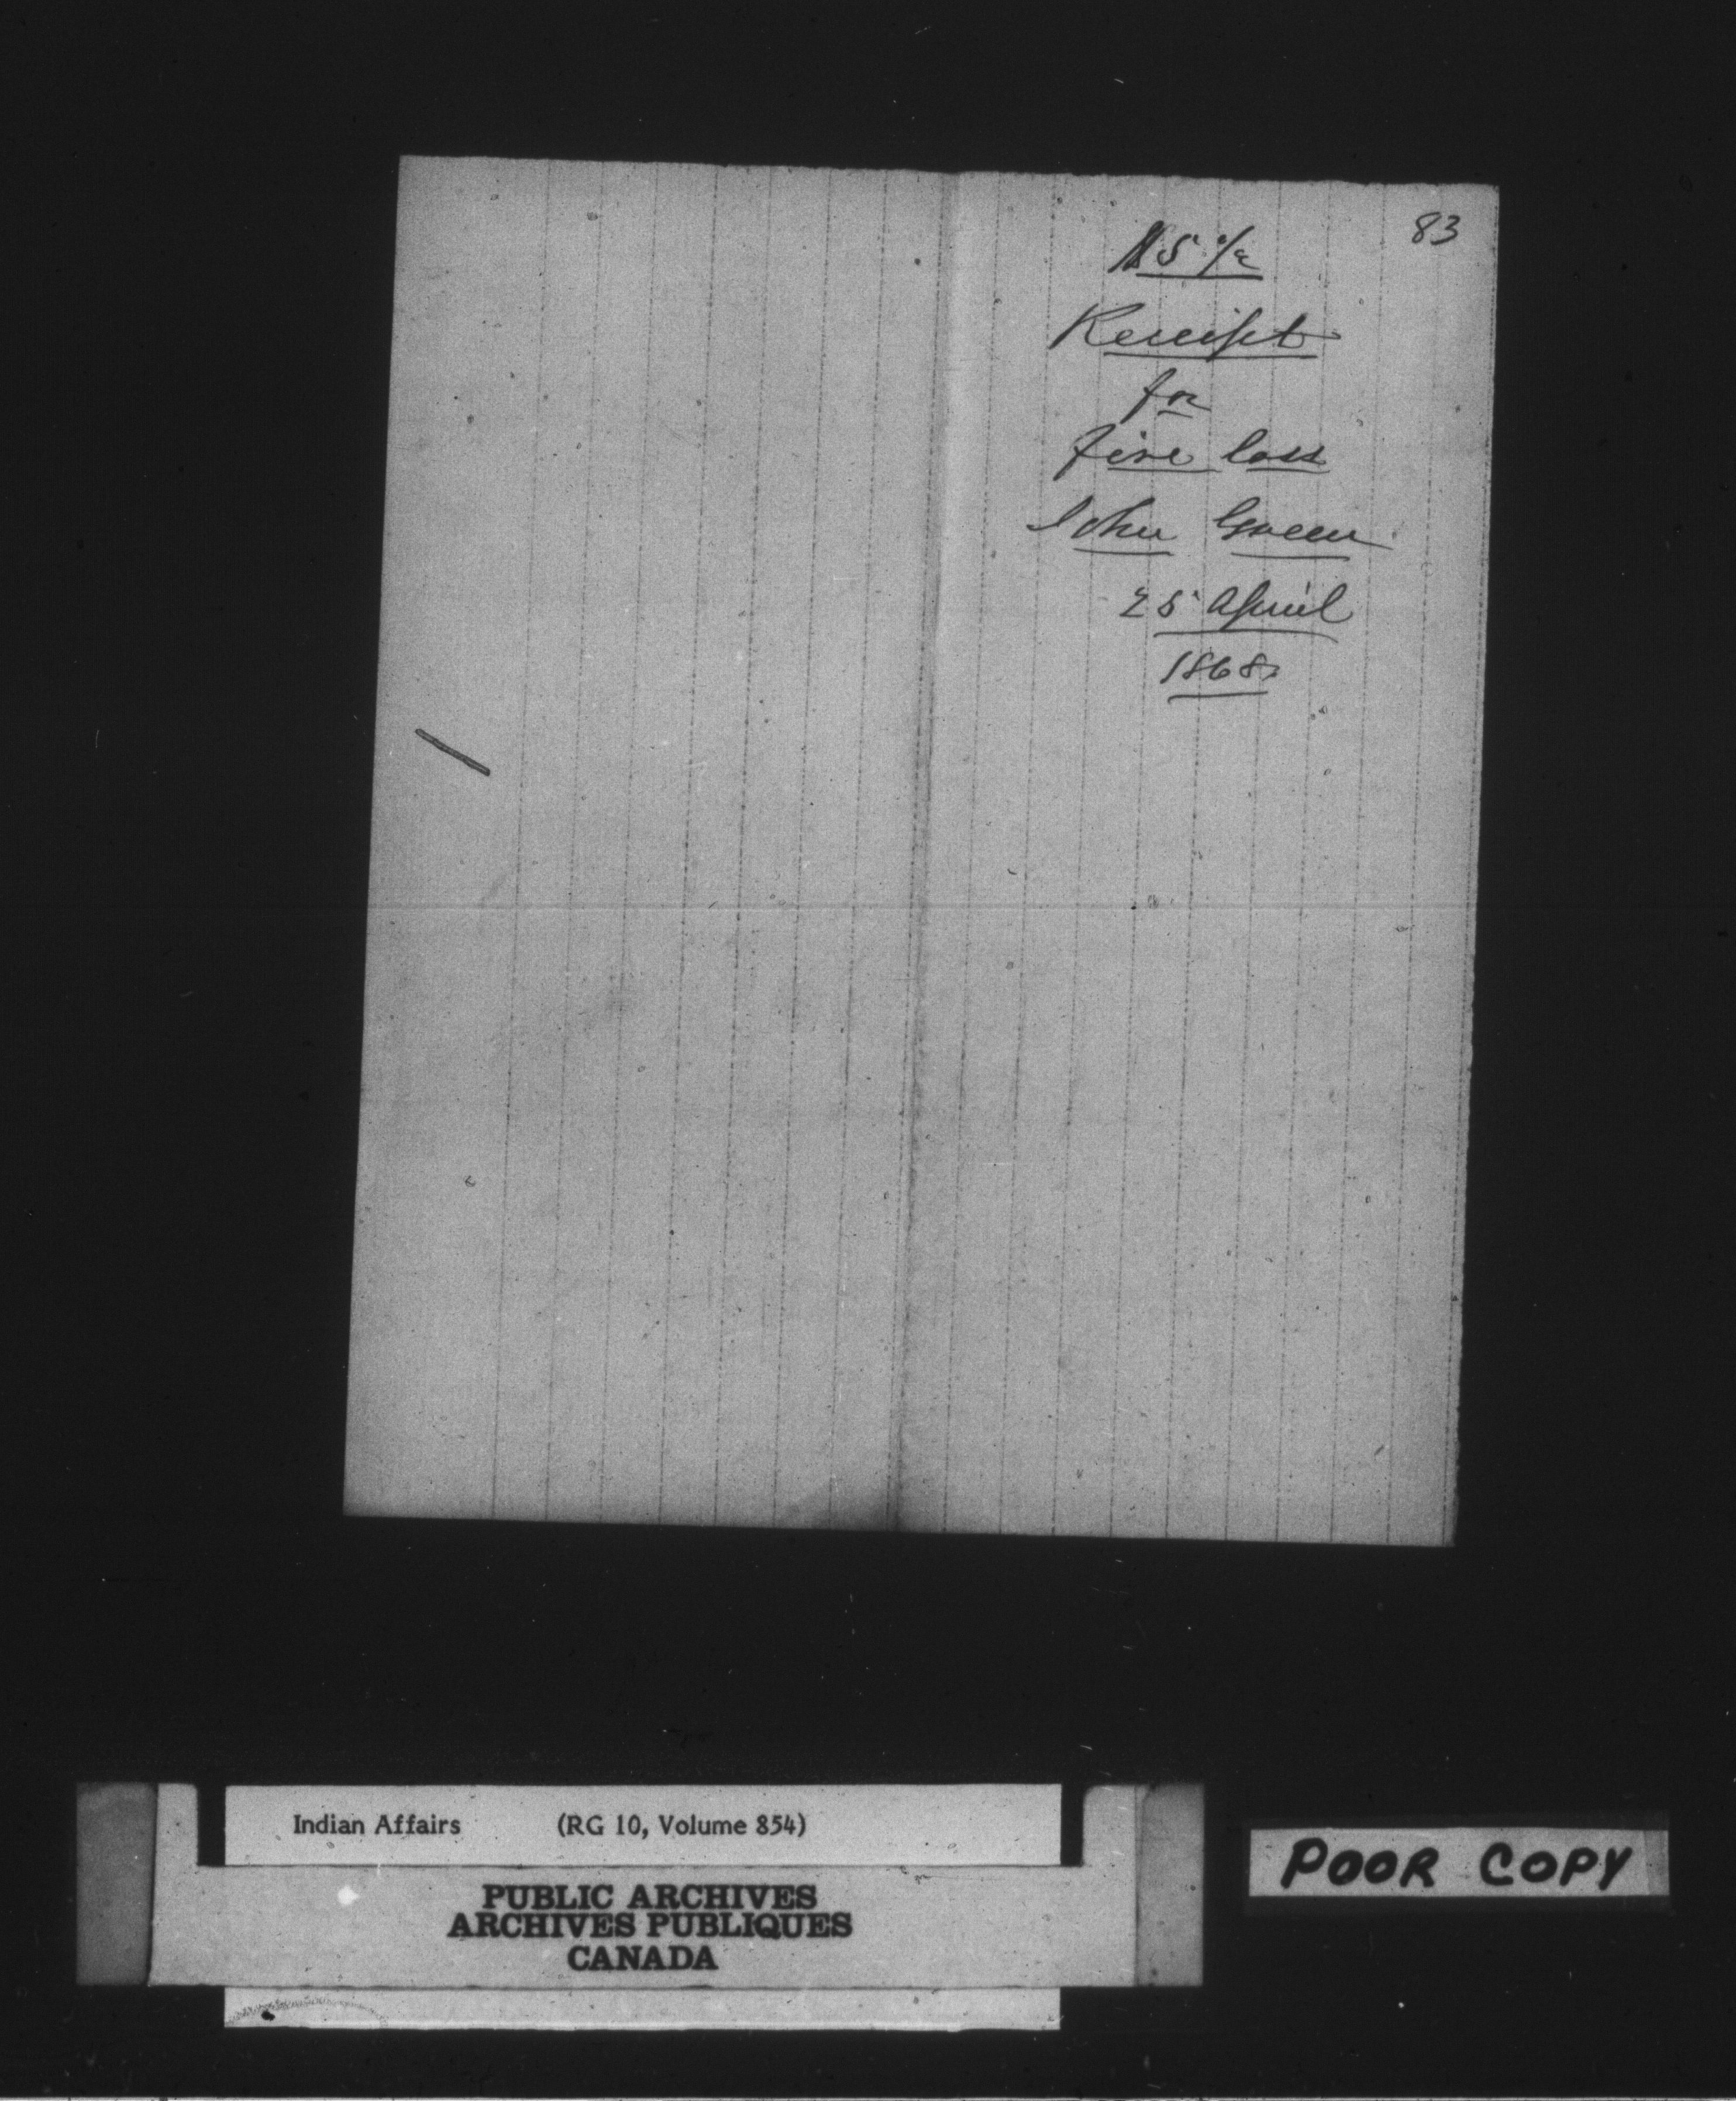 83
Receipt
for
fire loss
John Green
25 April
1868.
Indian Affairs (RG 10, Volume 854)
PUBLIC ARCHIVES
ARCHIVES PUBLIQUES
CANADA
POOR COPY